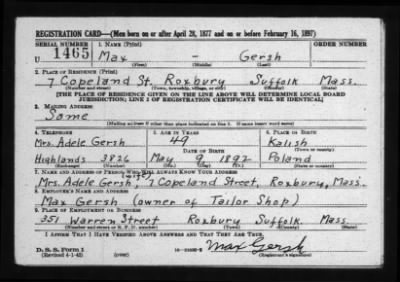 REGISTRATION CARD—(Men born on or after April 28, 1877 and on or before February 16, 1897)
SERIAL NUMBER 1. NAME (Print) ORDER NUMBER
U 1465 Max — Gersh
(First) (Middle) (Last)
2. PLACE OF RESIDENCE (Print)
7 Copeland St. Roxbury Suffolk Mass.
(Number and street) (Town, township, village, or city) (County) (State)
[THE PLACE OF RESIDENCE GIVEN ON THE LINE ABOVE WILL DETERMINE LOCAL BOARD
JURISDICTION; LINE 2 OF REGISTRATION CERTIFICATE WILL BE IDENTICAL]
3. MAILING ADDRESS
Same
[Mailing address if other than place indicated on line 2. If same insert word same]
4. TELEPHONE 5. AGE IN YEARS 6. PLACE OF BIRTH
Mrs. Adele Gersh 49 Kalish
DATE OF BIRTH (Town or county)
Highlands 3826 May 9 1892 Poland
(Exchange) (Number) (Mo.) (Day) (Yr.) (State or country)
7. NAME AND ADDRESS OF PERSON WHO WILL ALWAYS KNOW YOUR ADDRESS
Mrs. Adele Gersh, 7 Copeland Street, Roxbury, Mass.
8. EMPLOYER'S NAME AND ADDRESS
Max Gersh (owner of Tailor Shop)
9. PLACE OF EMPLOYMENT OR BUSINESS
351 Warren Street Roxbury Suffolk Mass.
(Number and street or R. F. D. number) (Town) (County) (State)
I AFFIRM THAT I HAVE VERIFIED ABOVE ANSWERS AND THAT THEY ARE TRUE.
D. S. S. Form 1
(Revised 4-1-42) (over) Max Gersh
(Registrant's signature)